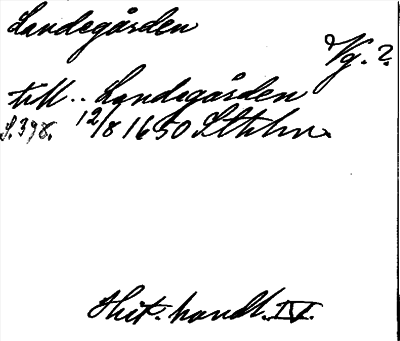 Landegården
Vg. ?
till .. Landegården
S. 398. 12/8 1650 Sthlm.
Hist. handl. IV.